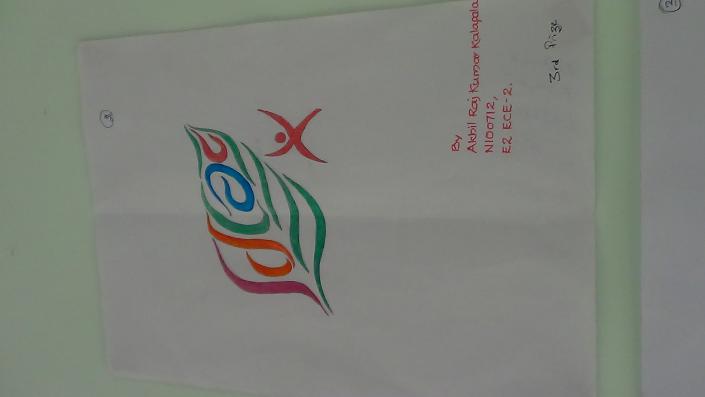 3
By
Akhil Raj Kumar Kalapala
N100712,
E2 ECE-2.
3rd Prize
2